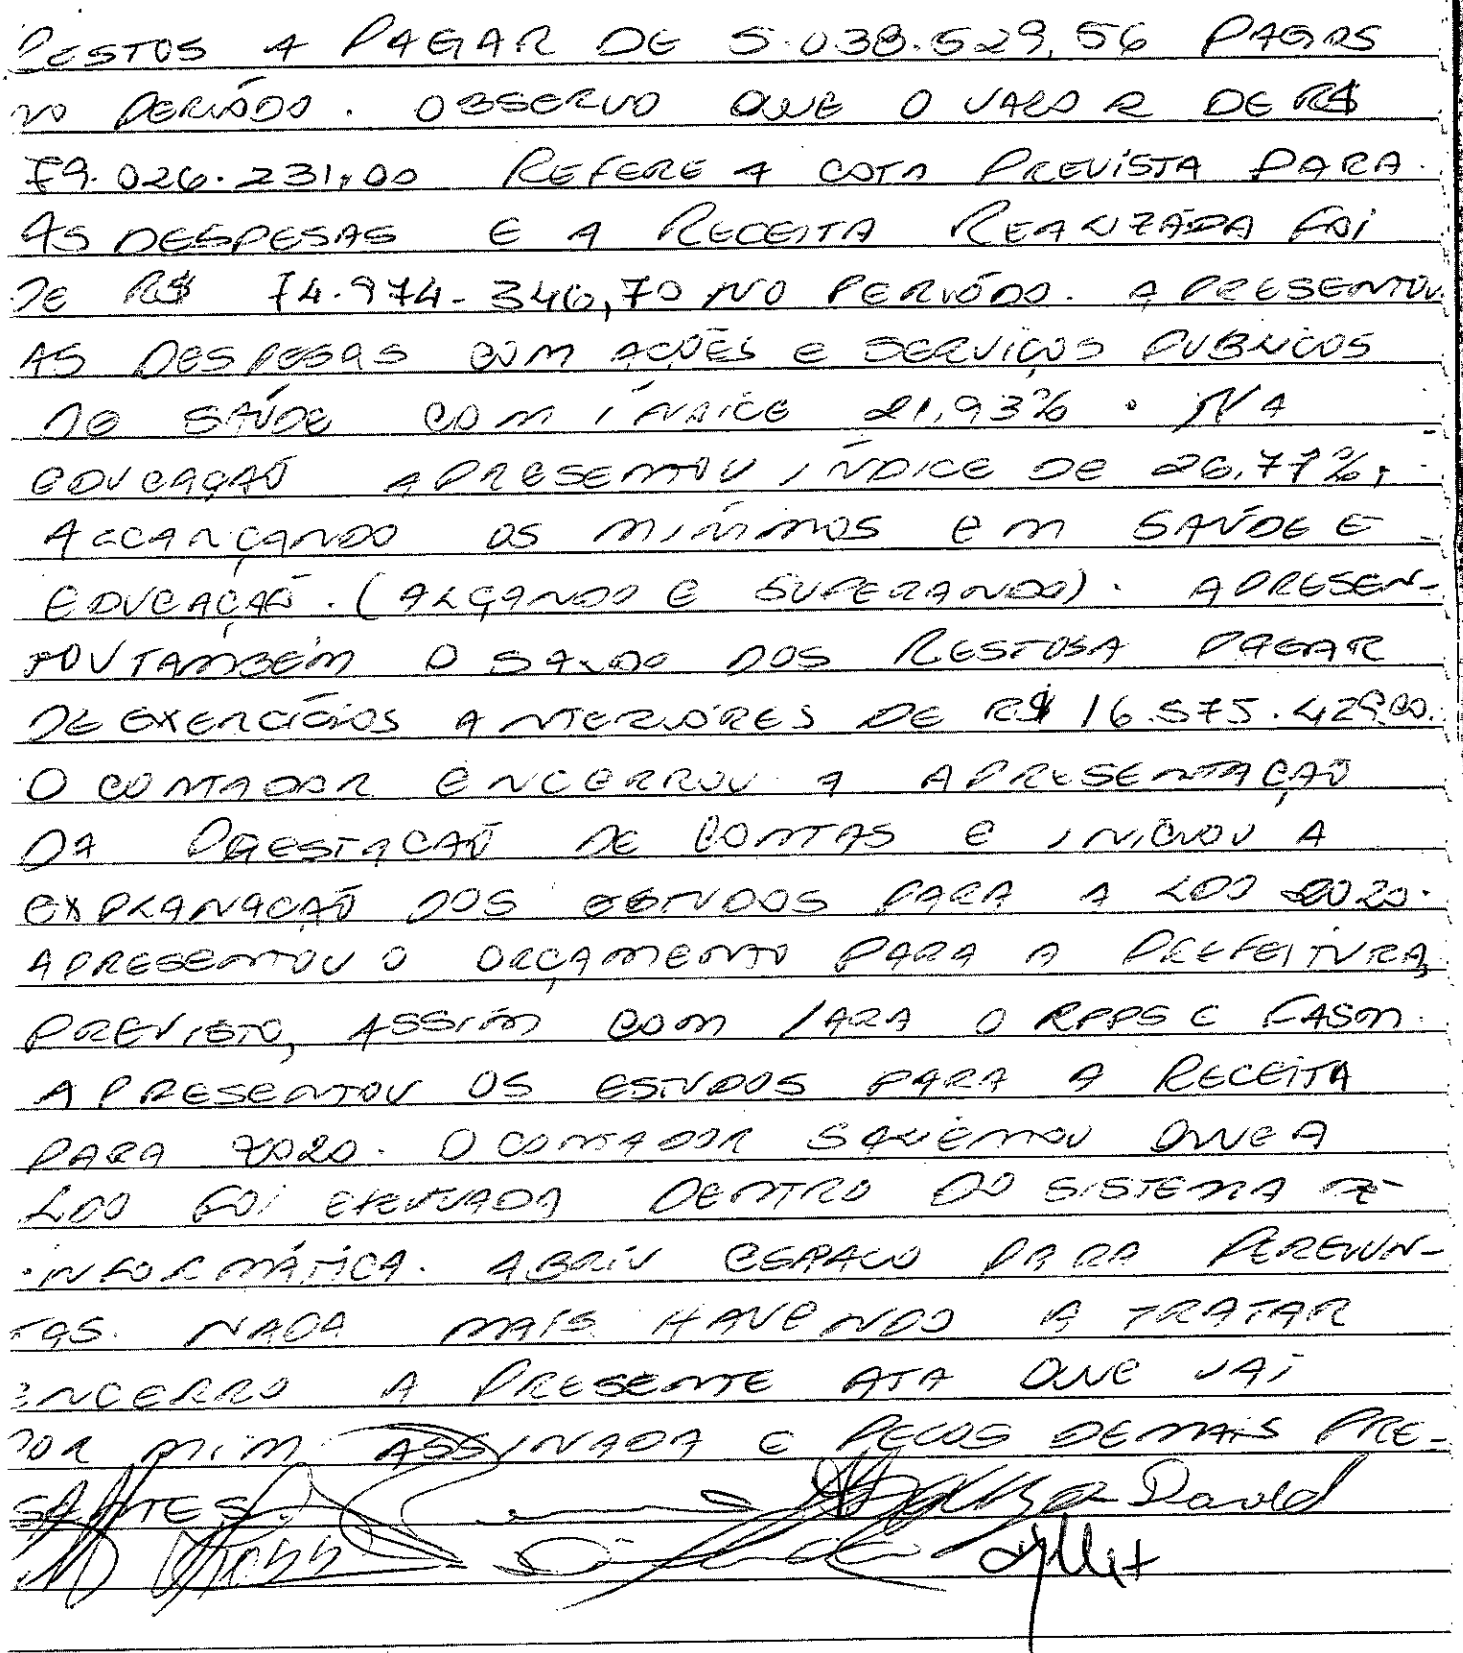 RESTOS A PAGAR DE 5.038.529,56 PAGOS
NO PERIÓDO. OBSERVO QUE O VALOR DE R$
79.026.231,00 REFERE A COTA PREVISTA PARA
AS DESPESAS E A RECEITA REALIZADA FOI
DE R$ 74.974.346,70 NO PERIÓDO. APRESENTOU
AS DESPESAS COM AÇÕES E SERVIÇOS PUBLICOS
DE SAÚDE COM ÍNDICE 21,93%. NA
EDUCAÇÃO APRESENTOU ÍNDICE DE 26,77%,
ALCANÇANDO OS MÍNIMOS EM SAÚDE E
EDUCAÇÃO. (ALÇANDO E SUPERANDO). APRESEN-
TOU TAMBÉM O SALDO DOS RESTOS A PAGAR
DE EXERCÍCIOS ANTERIÓRES DE R$ 16.575.429,00.
O CONTADOR ENCERROU A APRESENTAÇÃO
DA PRESTAÇÃO DE CONTAS E INICIOU A
EXPLANAÇÃO DOS ESTUDOS PARA A LDO 2020.
APRESENTOU O ORÇAMENTO PARA A PREFEITURA,
PREVISTO, ASSIM COM PARA O RPPS E FASM.
APRESENTOU OS ESTUDOS PARA A RECEITA
PARA 2020. O CONTADOR SALIENTOU QUE A
LDO FOI EFETUADA DENTRO DO SISTEMA DE
INFORMÁTICA. ABRIU ESPAÇO PARA PERGUN-
TAS. NADA MAIS HAVENDO A TRATAR
ENCERRO A PRESENTE ATA QUE VAI
POR MIM ASSINADA E PELOS DEMAIS PRE-
SENTES.
David